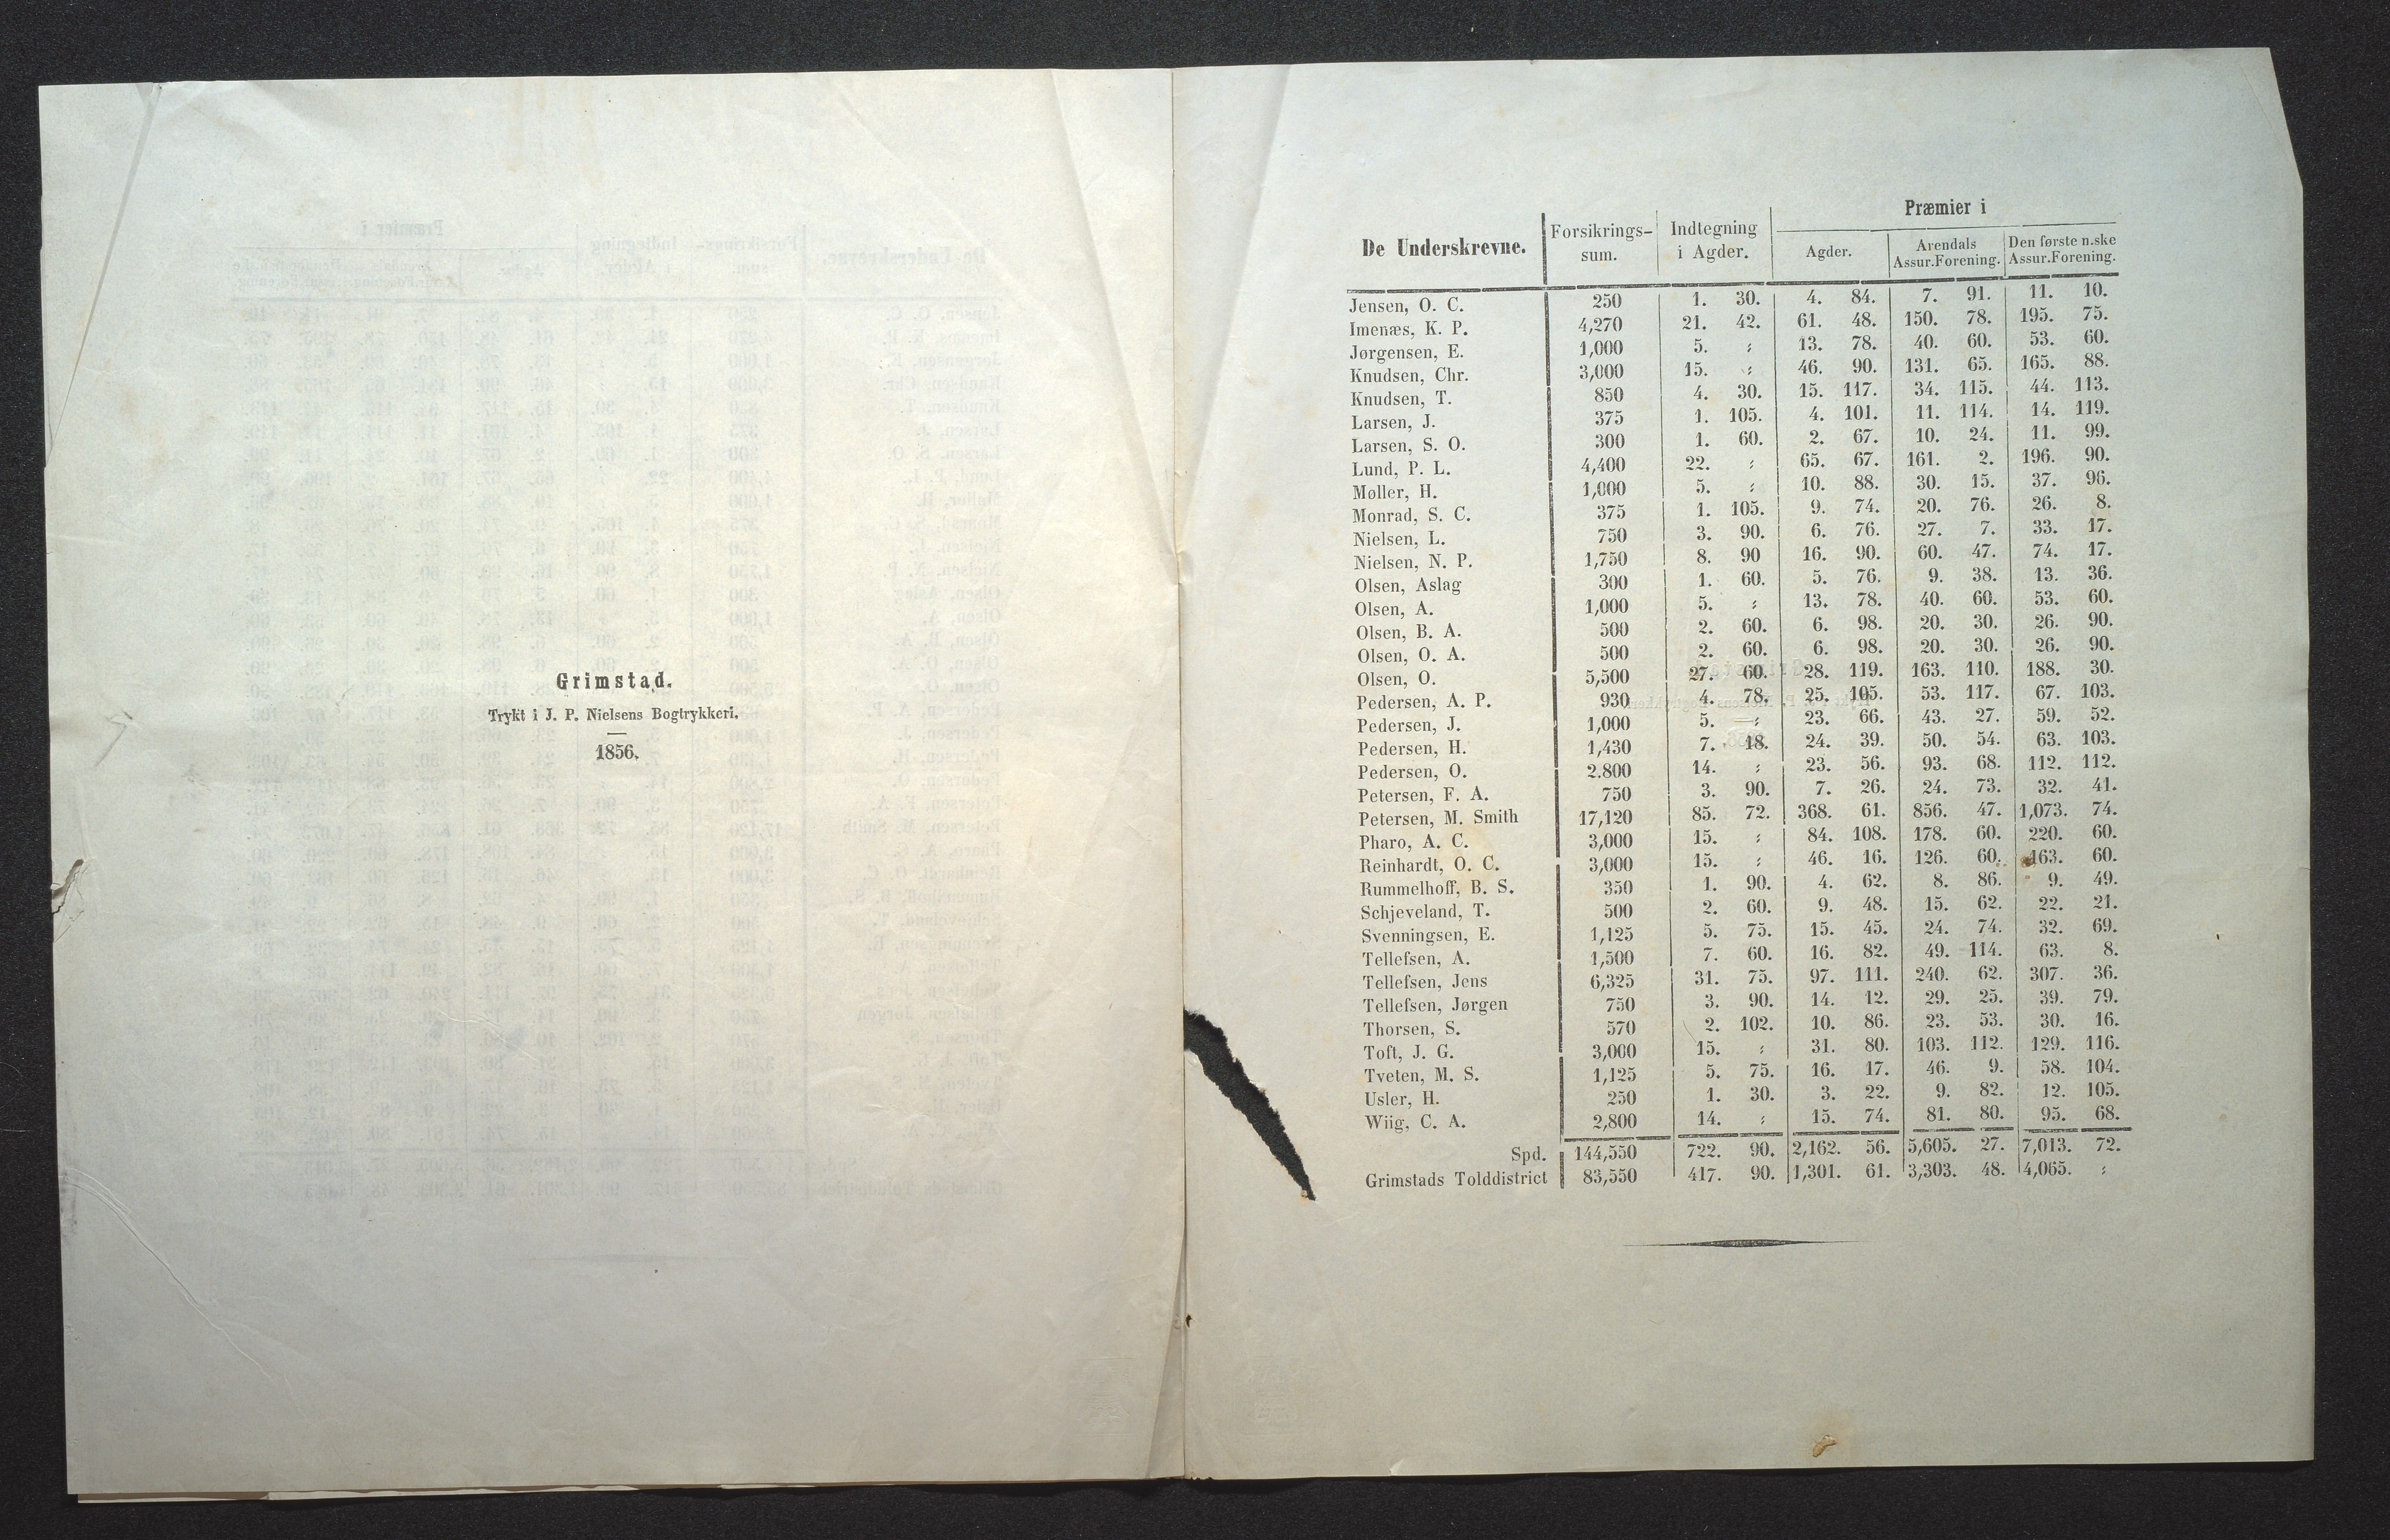 Grimstad.
Trykt i J. P. Nielsens Bogtrykkeri.
1856.
Præmier i
De Underskrevne. Forsikrings-sum. Indtegning i Agder. Agder. Arendals Assur.Forening. Den første n.ske Assur.Forening.
Jensen, O. C. 250 1. 30. 4. 84. 7. 91. 11. 10.
Imenæs, K. P. 4,270 21. 42. 61. 48. 150. 78. 195. 75.
Jørgensen, E. 1,000 5. : 13. 78. 40. 60. 53. 60.
Knudsen, Chr. 3,000 15. : 46. 90. 131. 65. 165. 88.
Knudsen, T. 850 4. 30. 15. 117. 34. 115. 44. 113.
Larsen, J. 375 1. 105. 4. 101. 11. 114. 14. 119.
Larsen, S. O. 300 1. 60. 2. 67. 10. 24. 11. 99.
Lund, P. L. 4,400 22. : 65. 67. 161. 2. 196. 90.
Møller, H. 1,000 5. : 10. 88. 30. 15. 37. 96.
Monrad, S. C. 375 1. 105. 9. 74. 20. 76. 26. 8.
Nielsen, L. 750 3. 90. 6. 76. 27. 7. 33. 17.
Nielsen, N. P. 1,750 8. 90 16. 90. 60. 47. 74. 17.
Olsen, Aslag 300 1. 60. 5. 76. 9. 38. 13. 36.
Olsen, A. 1,000 5. : 13. 78. 40. 60. 53. 60.
Olsen, B. A. 500 2. 60. 6. 98. 20. 30. 26. 90.
Olsen, O. A. 500 2. 60. 6. 98. 20. 30. 26. 90.
Olsen, O. 5,500 27. 60. 28. 119. 163. 110. 188. 30.
Pedersen, A. P. 930 4. 78. 25. 105. 53. 117. 67. 103.
Pedersen, J. 1,000 5. : 23. 66. 43. 27. 59. 52.
Pedersen, H. 1,430 7. 18. 24. 39. 50. 54. 63. 103.
Pedersen, O. 2.800 14. : 23. 56. 93. 68. 112. 112.
Petersen, F. A. 750 3. 90. 7. 26. 24. 73. 32. 41.
Petersen, M. Smith 17,120 85. 72. 368. 61. 856. 47. 1,073. 74.
Pharo, A. C. 3,000 15. : 84. 108. 178. 60. 220. 60.
Reinhardt, O. C. 3,000 15. : 46. 16. 126. 60. 163. 60.
Rummelhoff, B. S. 350 1. 90. 4. 62. 8. 86. 9. 49.
Schjeveland, T. 500 2. 60. 9. 48. 15. 62. 22. 21.
Svenningsen, E. 1,125 5. 75. 15. 45. 24. 74. 32. 69.
Tellefsen, A. 1,500 7. 60. 16. 82. 49. 114. 63. 8.
Tellefsen, Jens 6,325 31. 75. 97. 111. 240. 62. 307. 36.
Tellefsen, Jørgen 750 3. 90. 14. 12. 29. 25. 39. 79.
Thorsen, S. 570 2. 102. 10. 86. 23. 53. 30. 16.
Toft, J. G. 3,000 15. : 31. 80. 103. 112. 129. 116.
Tveten, M. S. 1,125 5. 75. 16. 17. 46. 9. 58. 104.
Usler, H. 250 1. 30. 3. 22. 9. 82. 12. 105.
Wiig, C. A. 2,800 14. : 15. 74. 81. 80. 95. 68.
Spd. 144,550 722. 90. 2,162. 56. 5,605. 27. 7,013. 72.
Grimstads Tolddistrict 83,550 417. 90. 1,301. 61. 3,303. 48. 4,065. :